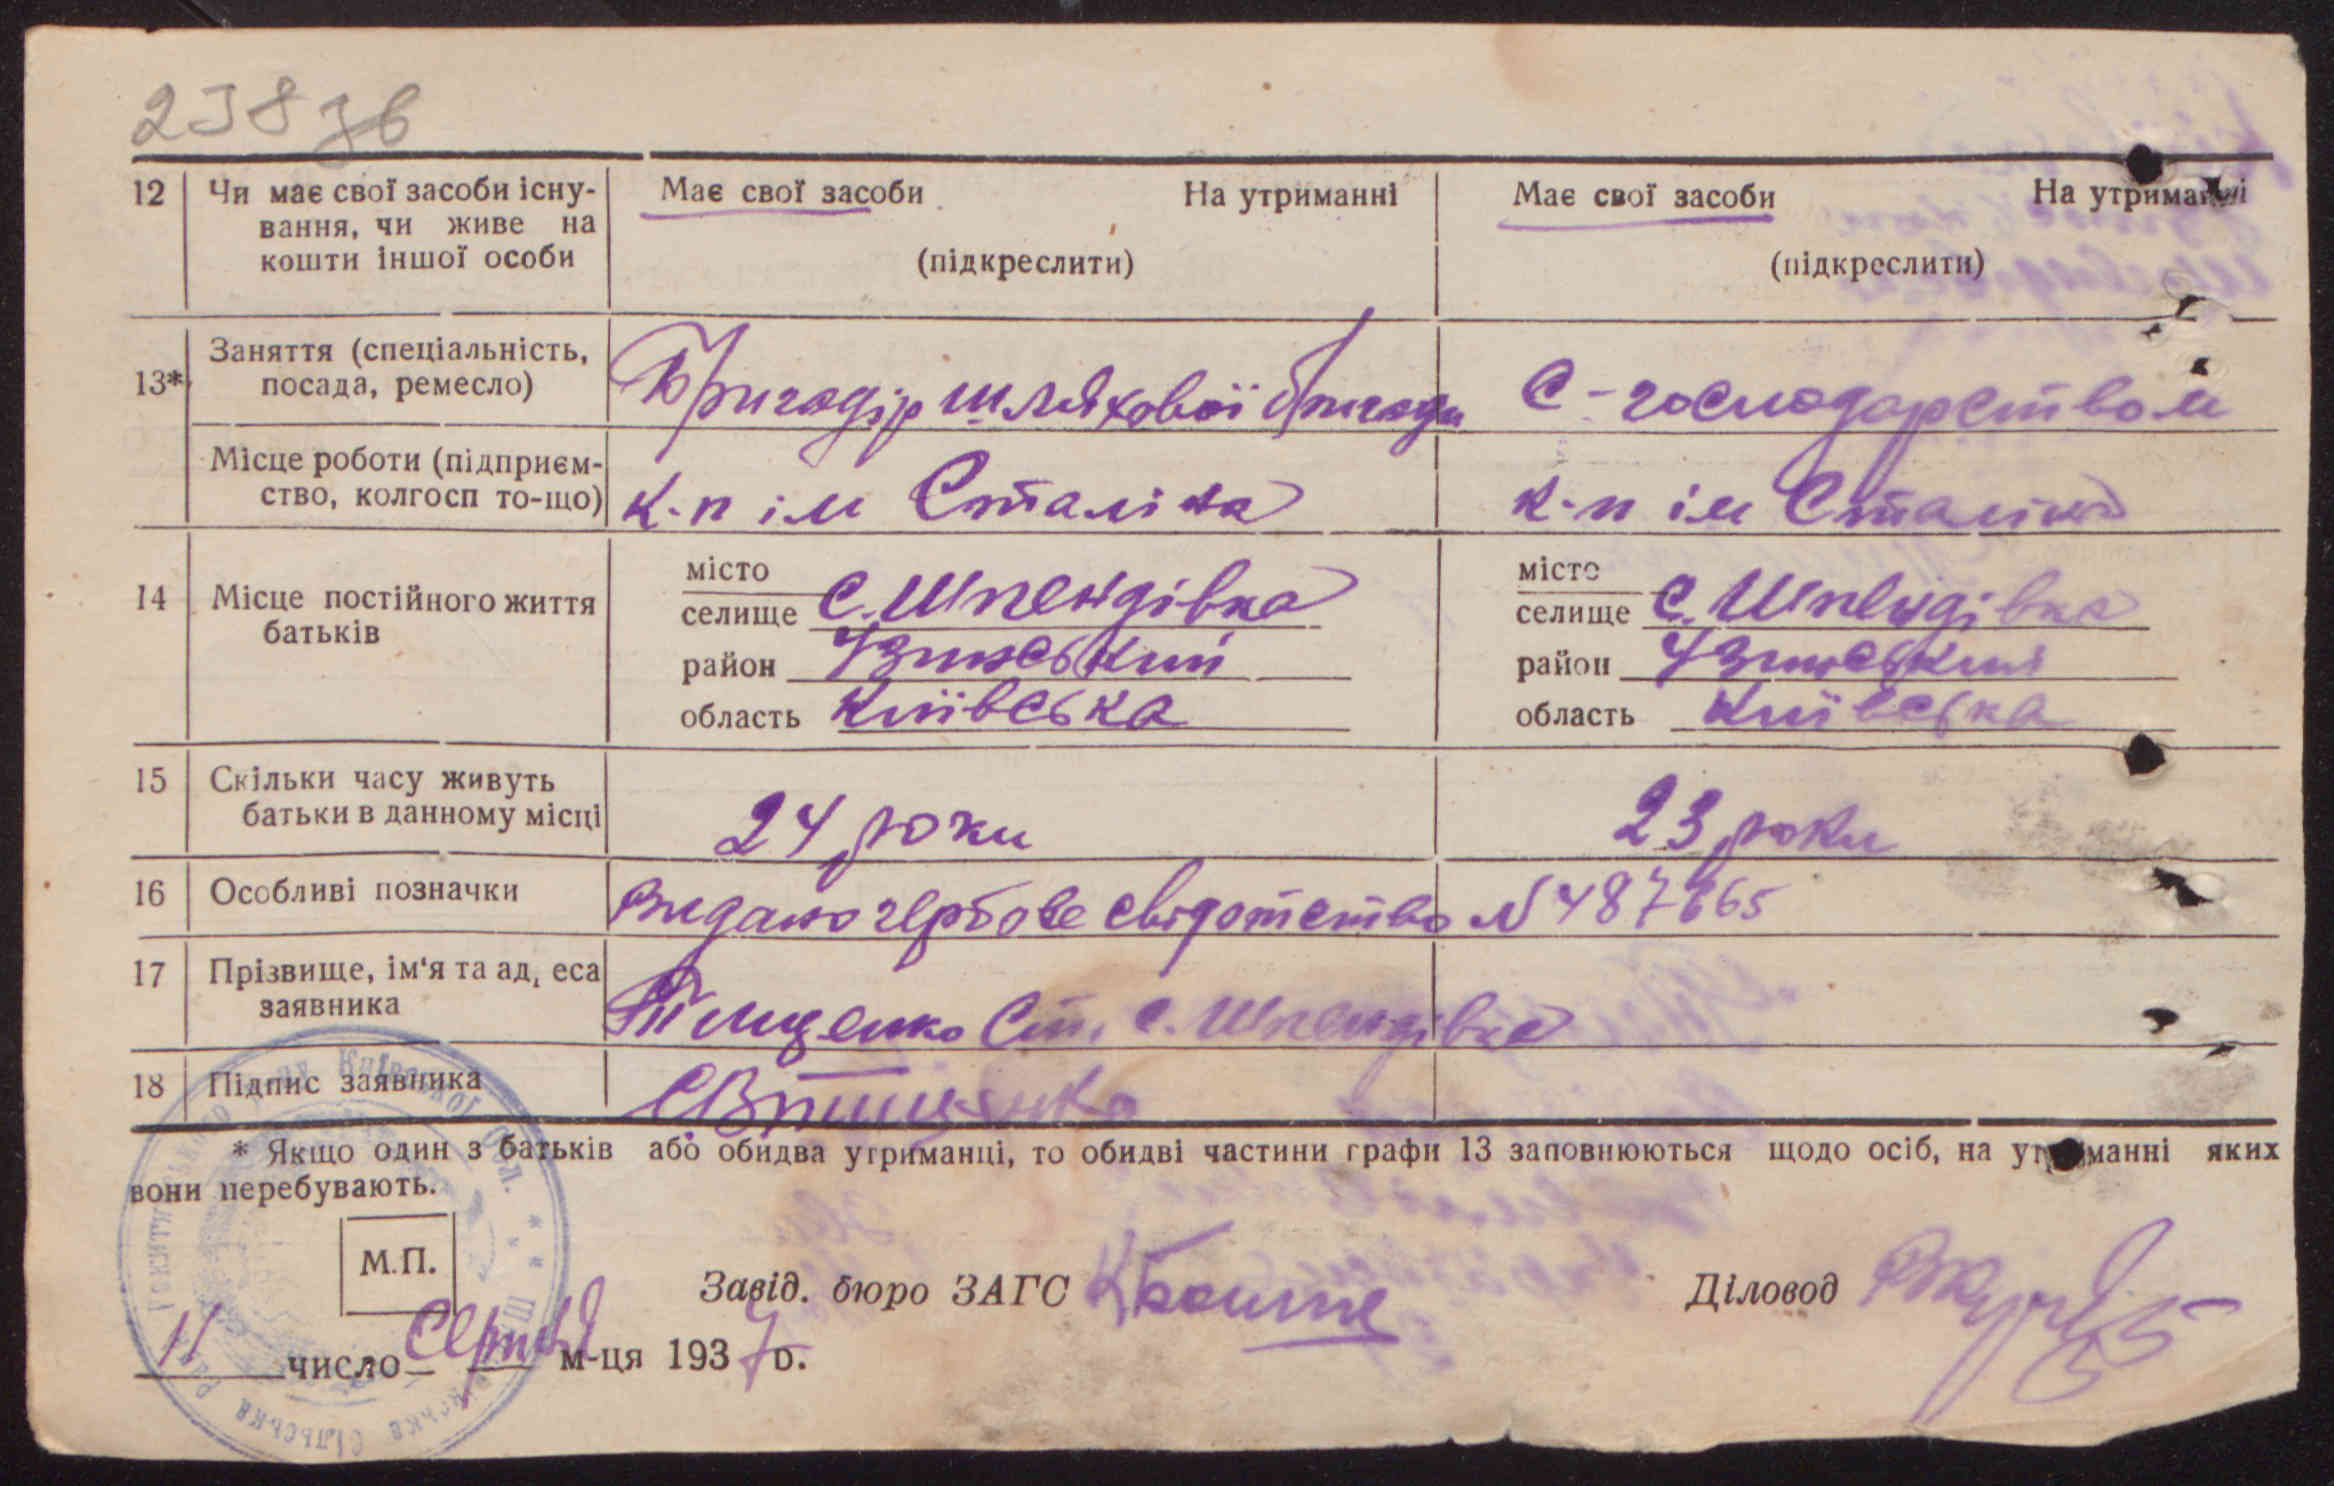 23876
12 Чи має свої засоби існу- Має свої засоби На утриманні Має свої засоби На утриманні
вання, чи живе на
кошти іншої особи (підкреслити) (підкреслити)
13* Заняття (спеціальність,
посада, ремесло) Бригадір шляхової бригади С-господарством
Місце роботи (підприєм-
ство, колгосп то-що) к-п ім Сталіна к-п ім Сталіна
14 Місце постійного життя
батьків
місто місто
селище с. Шпендівка селище с. Шпендівка
район Узинський район Узинський
область Київська область Київська
15 Скільки часу живуть
батьки в данному місці 24 роки 23 роки
16 Особливі позначки Видано гербове свідотство № 487665
17 Прізвище, ім'я та ад, еса
заявника Тищенко Ст. с. Шпендівка
18 Підпис заявника Тищенко
* Якщо один з батьків або обидва утриманці, то обидві частини графи 13 заповнюються щодо осіб, на утриманні яких
вони перебувають.
М.П.
Завід. бюро ЗАГС Діловод
11 число Серпня м-ця 1937 р.
Київської обл.
сільська Рада